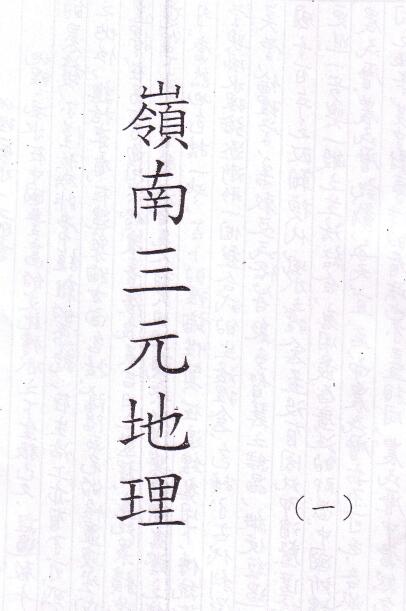 嶺南三元地理
（一）